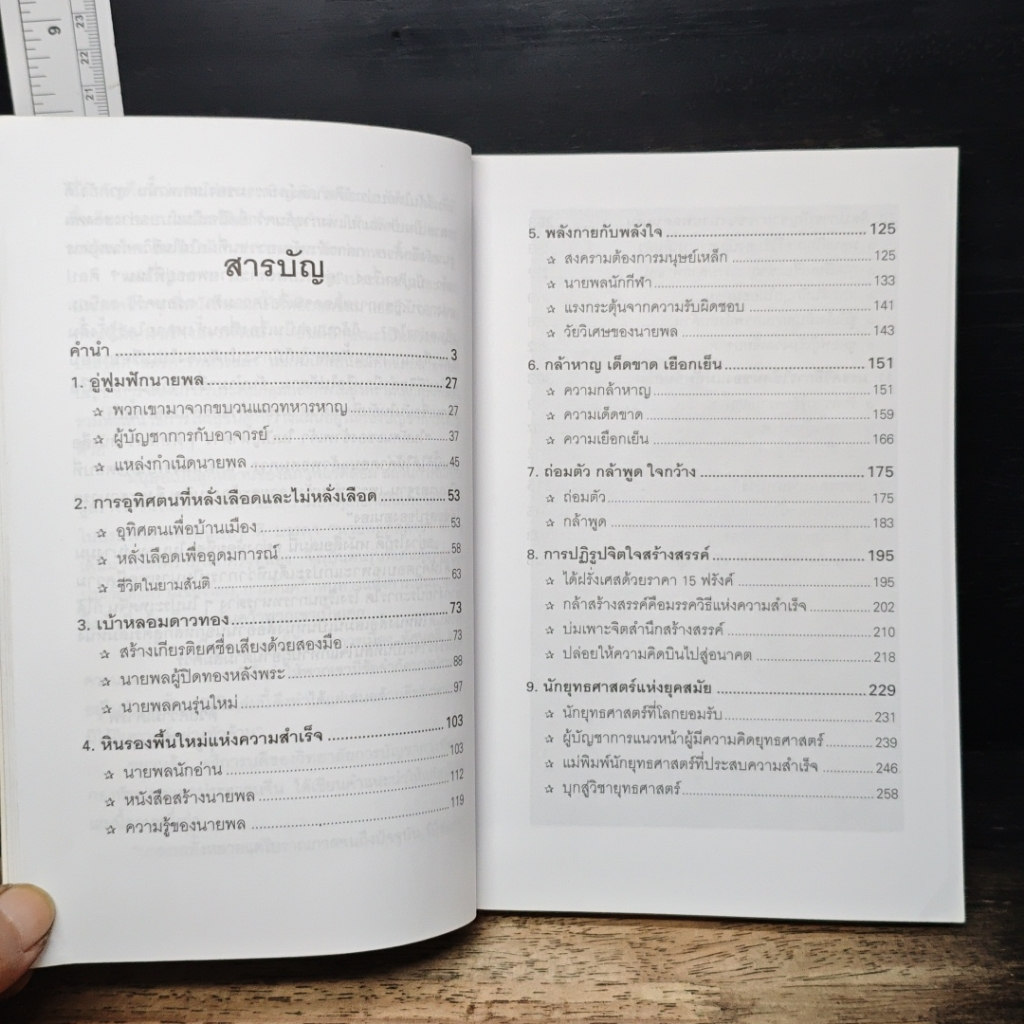 9
23
22
21
สารบัญ
คำนำ ........ 3
1. อู่ฟูมฟักนายพล ........ 27
☆ พวกเขามาจากขบวนแถวทหารหาญ ........ 27
☆ ผู้บัญชาการกับอาจารย์ ........ 37
☆ แหล่งกำเนิดนายพล ........ 45
2. การอุทิศตนที่หลั่งเลือดและไม่หลั่งเลือด ........ 53
☆ อุทิศตนเพื่อบ้านเมือง ........ 53
☆ หลั่งเลือดเพื่ออุดมการณ์ ........ 58
☆ ชีวิตในยามสันติ ........ 63
3. เบ้าหลอมดาวทอง ........ 73
☆ สร้างเกียรติยศชื่อเสียงด้วยสองมือ ........ 73
☆ นายพลผู้ปิดทองหลังพระ ........ 88
☆ นายพลคนรุ่นใหม่ ........ 97
4. หินรองพื้นใหม่แห่งความสำเร็จ ........ 103
☆ นายพลนักอ่าน ........ 103
☆ หนังสือสร้างนายพล ........ 112
☆ ความรู้ของนายพล ........ 119
5. พลังกายกับพลังใจ ........ 125
☆ สงครามต้องการมนุษย์เหล็ก ........ 125
☆ นายพลนักกีฬา ........ 133
☆ แรงกระตุ้นจากความรับผิดชอบ ........ 141
☆ วัยวิเศษของนายพล ........ 143
6. กล้าหาญ เด็ดขาด เยือกเย็น ........ 151
☆ ความกล้าหาญ ........ 151
☆ ความเด็ดขาด ........ 159
☆ ความเยือกเย็น ........ 166
7. ถ่อมตัว กล้าพูด ใจกว้าง ........ 175
☆ ถ่อมตัว ........ 175
☆ กล้าพูด ........ 183
8. การปฏิรูปจิตใจสร้างสรรค์ ........ 195
☆ ได้ฝรั่งเศสด้วยราคา 15 ฟรังค์ ........ 195
☆ กล้าสร้างสรรค์คือมรรควิธีแห่งความสำเร็จ ........ 202
☆ บ่มเพาะจิตสำนึกสร้างสรรค์ ........ 210
☆ ปล่อยให้ความคิดบินไปสู่อนาคต ........ 218
9. นักยุทธศาสตร์แห่งยุคสมัย ........ 229
☆ นักยุทธศาสตร์ที่โลกยอมรับ ........ 231
☆ ผู้บัญชาการแนวหน้าผู้มีความคิดยุทธศาสตร์ ........ 239
☆ แม่พิมพ์นักยุทธศาสตร์ที่ประสบความสำเร็จ ........ 246
☆ บุกสู่วิชายุทธศาสตร์ ........ 258